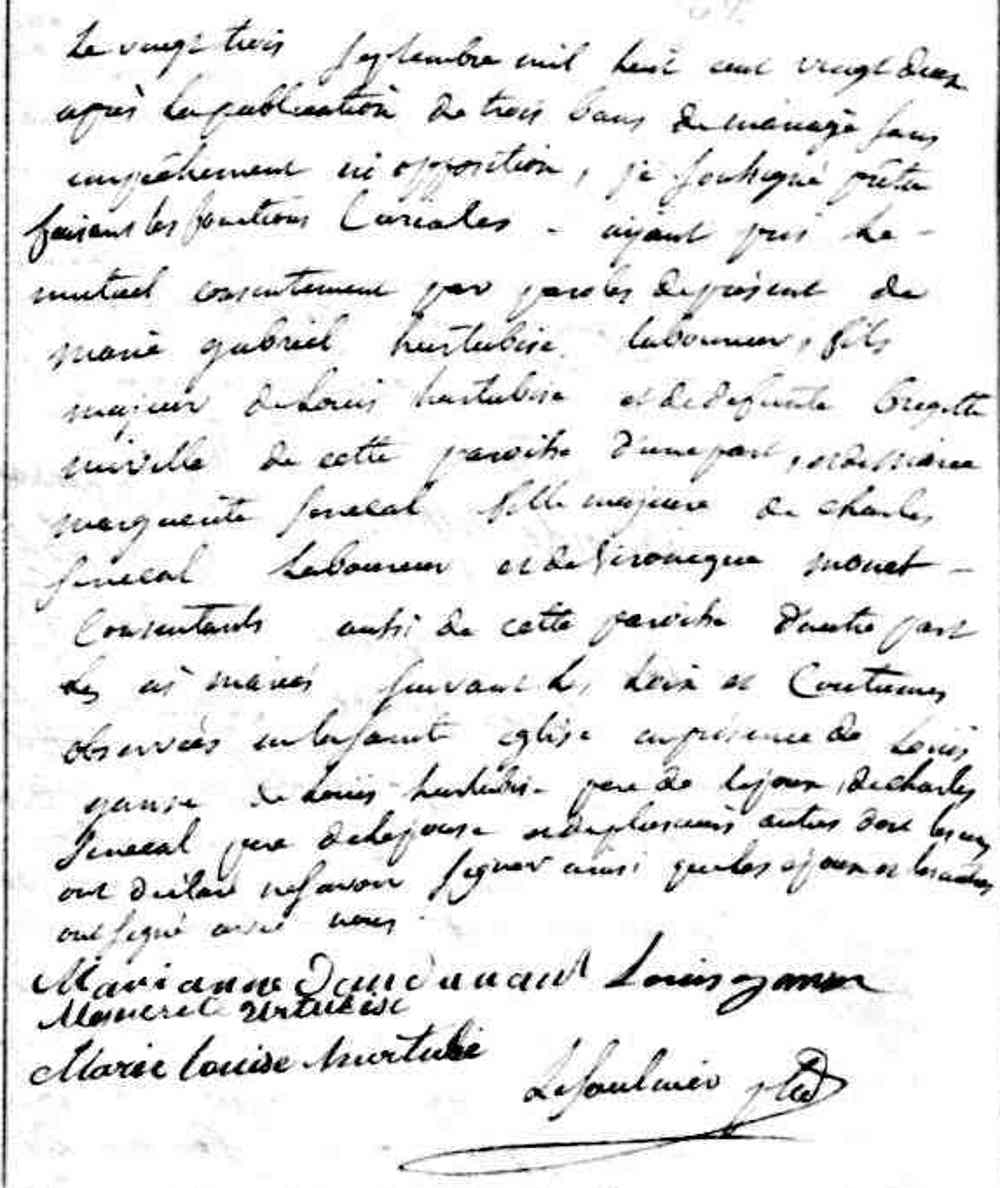 Le vingt trois Septembre mil huit cent vingt deux
après la publication de trois bans de mariage sans
empêchement ni opposition, je soussigné prêtre
faisant les fonctions Curiales - ayant pris le -
mutuel consentement par paroles de présent de
marie gabriel hurtubise laboureur, fils
majeur de Louis hurtubise et de defunte
miville de cette paroisse d'une part, et de marie
marguerite senecal fille majeure de charles
senecal Laboureur et de Veronique monet -
Consentants aussi de cette paroisse d'autre part
Les ai mariés suivant les loix et Coutumes
observées en la sainte eglise en présence de Louis
de Louis hurtubise pere de lepoux, de charles
Senecal pere de lepouse et de plusieurs autres dont les uns
ont déclaré ne savoir signer ainsi que les epoux et les autres
ont signé avec nous
Marianne Dandunant Louis
urtubise
Marie Louise hurtubie
Lesaulnier ptre